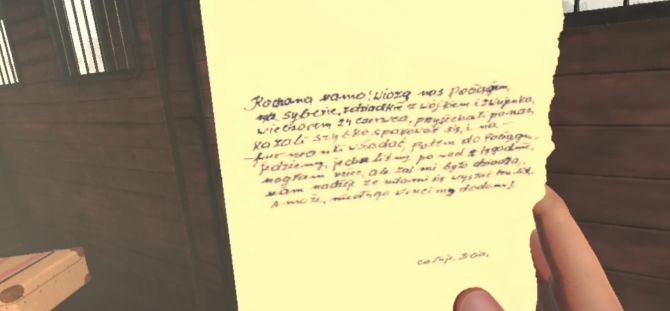 Kochana mamo! Wiozą nas pociągiem,
na syberię, z dziadkiem z wójkiem i z wujenką,
wieczorem 24 czerwca, przyjechali po nas,
kazali szybko spakować się, i na
furmanki wsiadać, potem do pociągu,
jedziemy, jechaliśmy ponad 2 tygodnie,
mogłam uciec, ale żal mi było dziadka,
mam nadzieję że udami się wysłać ten list,
a może, niedługo wrócimy dodomu!
całuję,